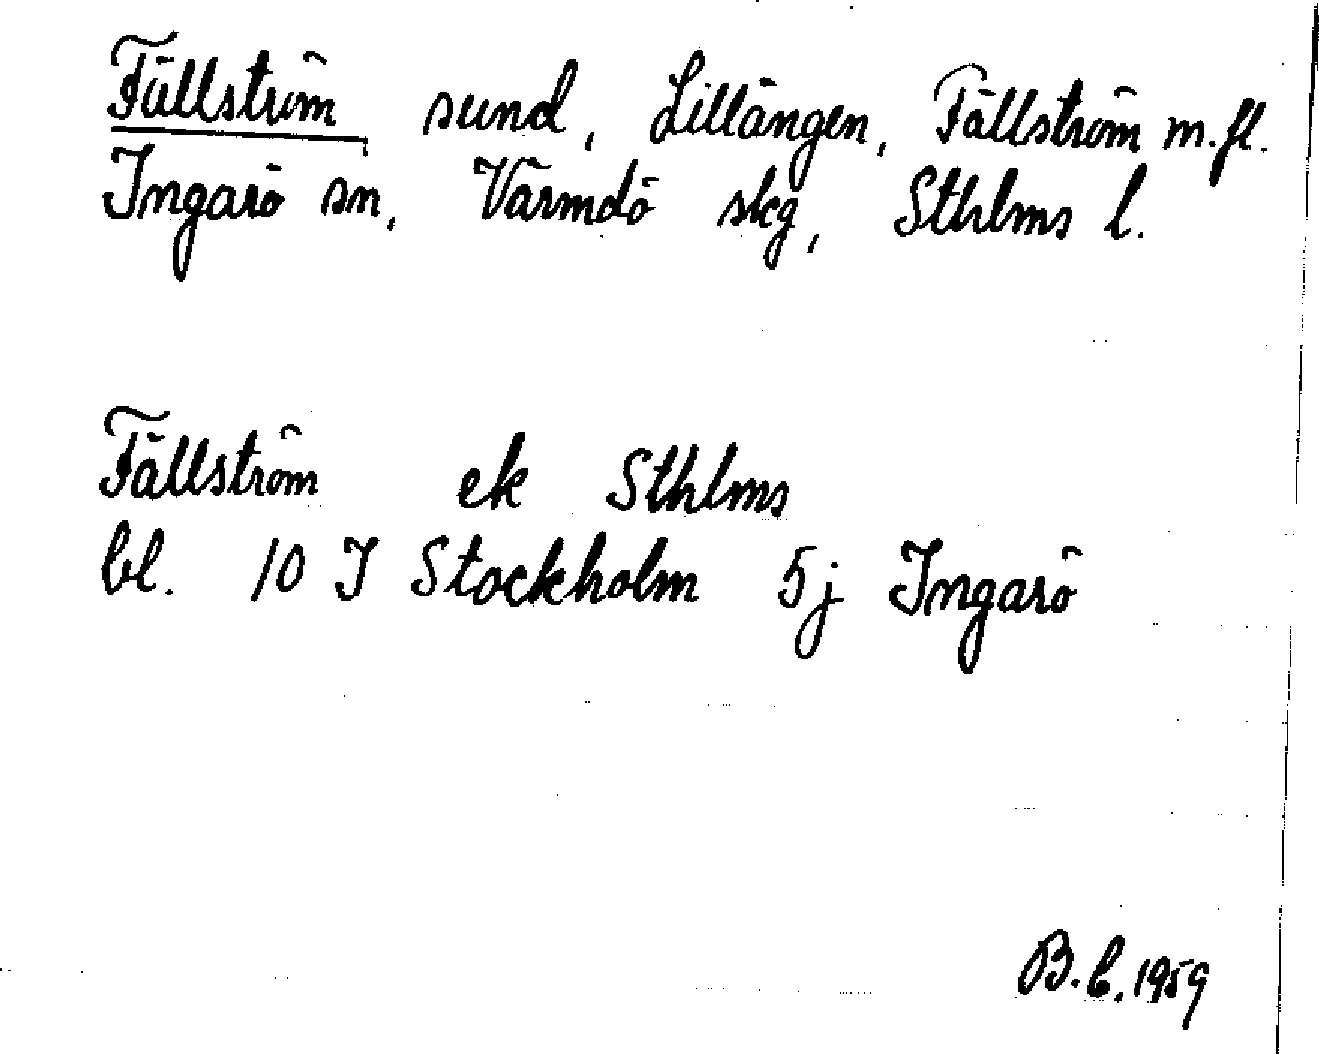 Fällström, sund, Lillängen, Fällström m.fl.
Ingarö sn, Värmdö skg, Sthlms l.
Fällström ek Sthlms
bl. 10 I Stockholm 5j Ingarö
B.C. 1959